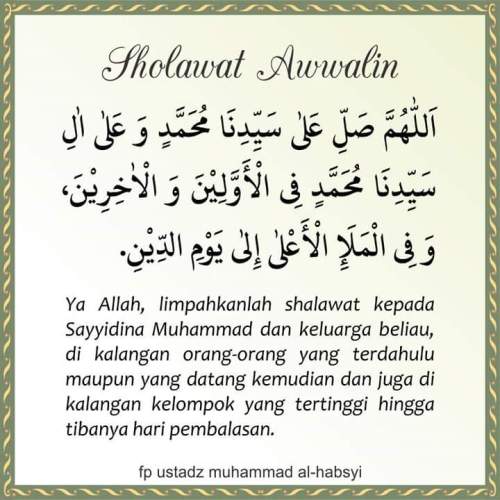 Sholawat Awwalin
اَللّٰهُمَّ صَلِّ عَلٰى سَيِّدِنَا مُحَمَّدٍ وَ عَلٰى اٰلِ
سَيِّدِنَا مُحَمَّدٍ فِى الْأَوَّلِيْنَ وَ الْاٰخِرِيْنَ،
وَ فِى الْمَلَإِ الْأَعْلٰى إِلٰى يَوْمِ الدِّيْنِ.
Ya Allah, limpahkanlah shalawat kepada
Sayyidina Muhammad dan keluarga beliau,
di kalangan orang-orang yang terdahulu
maupun yang datang kemudian dan juga di
kalangan kelompok yang tertinggi hingga
tibanya hari pembalasan.
fp ustadz muhammad al-habsyi